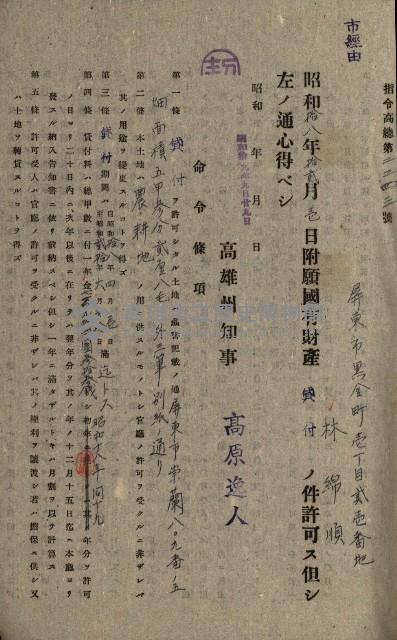 市經由
指令高總第二二四三號
屏東市黑金町壱丁目貳壱番地
林綿順
昭和拾八年拾貳月壱日附願國有財產貸付ノ件許可ス但シ
左ノ通心得ベシ
昭和 年 月 日
高雄州知事 高原逸人
命令條項
第一條 貸付ヲ許可シタル土地ハ 記載ノ通屏東市崇蘭八〇九番ノ五
畑面積五甲参分貳厘八毛 外三筆別紙ノ通リ
第二條 本土地ハ農耕地ノ用ニ供スルモノトシ官廳ノ許可ヲ受クルニ非ザレバ
其ノ用途ヲ變更スルコトヲ得ズ
第三條 貸付期間ハ自昭和拾八年四月壱日 滿 迄トス
第四條 貸付料ハ總甲數ニ付一年金 初年 年分ヲ許可
ノ日ヨリ二十日内ニ次年以後ニ在リテハ翌年分ヲ其ノ年ノ十二月十五日迄ニ本廳ヨリ
發スル納入告知書ニ依リ前納スベシ但シ一年ニ滿タザルトキハ月割ヲ以テ計算ス
第五條 許可受人ハ官廳ノ許可ヲ受クルニ非ザレバ其ノ權利ヲ讓渡シ若ハ擔保ニ供シ又
ハ土地ヲ轉貸スルコトヲ得ズ